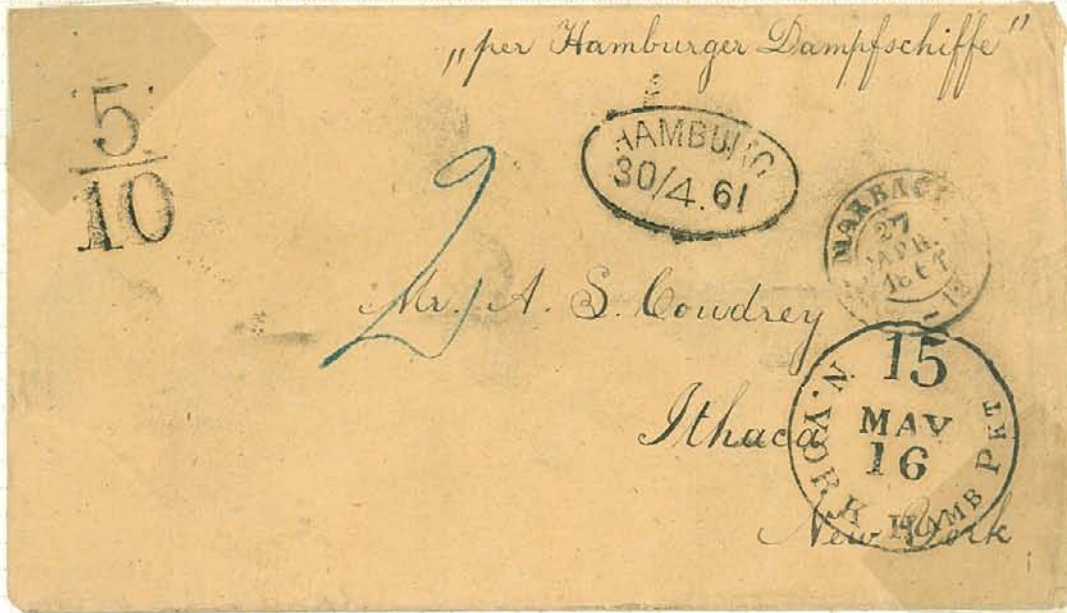 „per Hamburger Dampfschiffe"
5
10
HAMBURG
30/4.61
2
MARBACH
27
APR.
1861
Mr. A. S. Coudrey
Ithaca
New York
15
MAY
16
N. YORK HAMB PKT